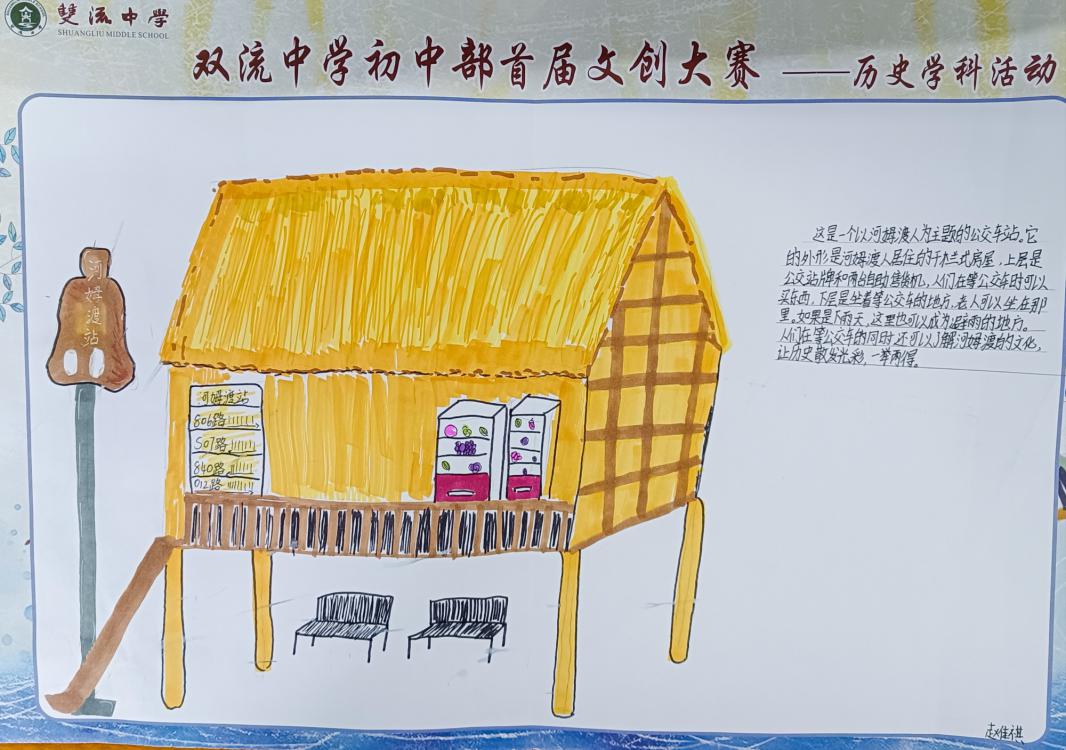 雙流中学
SHUANGLIU MIDDLE SCHOOL
双流中学初中部首届文创大赛 ——历史学科活动
河姆渡站
这是一个以河姆渡人为主题的公交车站。它
的外形是河姆渡人居住的干栏式房屋,上层是
公交站牌和两台自助售货机,人们在等公交车时可以
买东西,下层是坐着等公交车的地方,老人可以坐在那
里。如果是下雨天,这里也可以成为避雨的地方。
人们在等公交车的同时,还可以了解河姆渡的文化,
让历史散发光彩,一举两得。
河姆渡站
806路
507路
840路
012路
赵唯祺